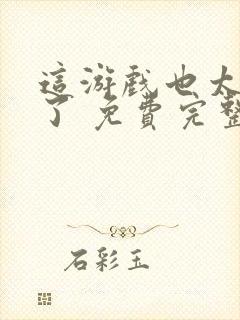 這游戲也太
了 免費完整
石彩玉